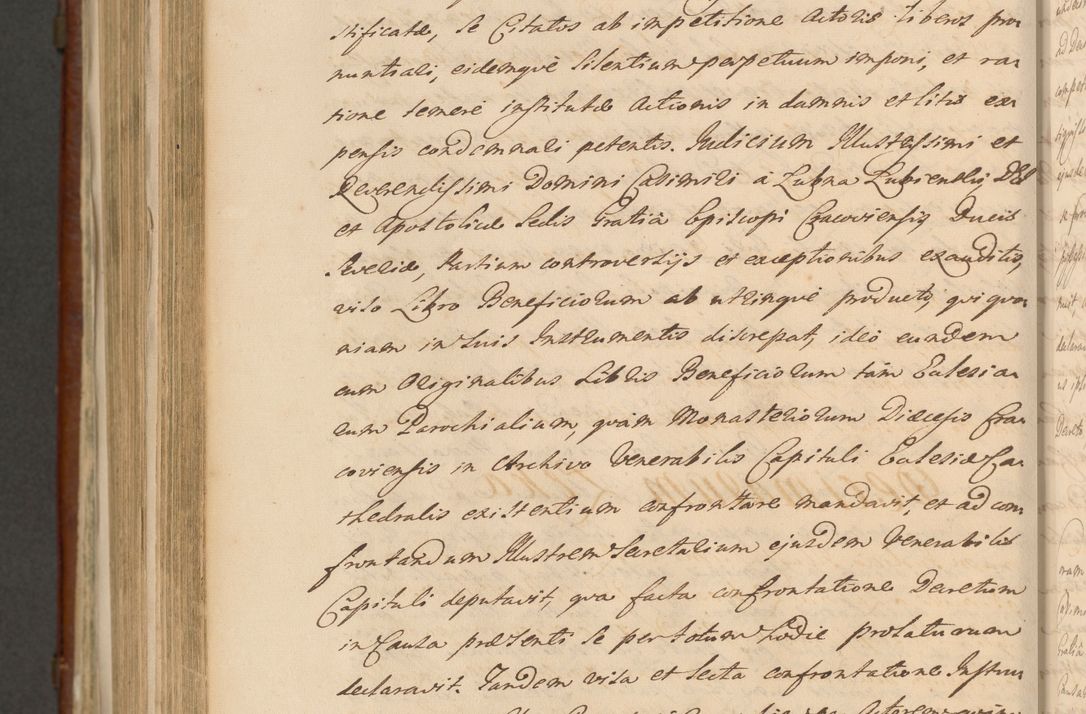 stificatæ, se Citatus ab impetitione Actoris liberos pro-
nuntiari, eidemqvè silentium perpetuum imponi, et ra-
tione temerè institutæ Actionis in damnis et litis ex-
pensis condemnari petentis. Judicium Illustrissimi et
Reverendissimi Domini Casimiri à Łubna Łubienskij DEI
et Apostolicæ Sedis Gratiâ Episcopi Cracoviensis Ducis
Severiæ, Partium controversijs et exceptionibus exauditis,
viso Libro Beneficiorum ab utrinqvè producto, qvi qvo-
niam in suis Instrumentis discrepat, ideò eundem
cum Originalibus Libris Beneficiorum tàm Eclesia-
rum Parochialium, qvàm Monasteriorum Diæcesis Cra-
coviensis in Archivo Venerabilis Capituli Eclesiæ Ca-
thedralis existentium confrontare mandavit, et ad con-
frontandum Illustrem Secretarium ejusdem Venerabilis
Capituli deputavit, qva facta confrontatione Decretum
in Causa præsenti se per totum hodie prolaturum
declaravit. Tandem visa et lecta confrontatione Instru-